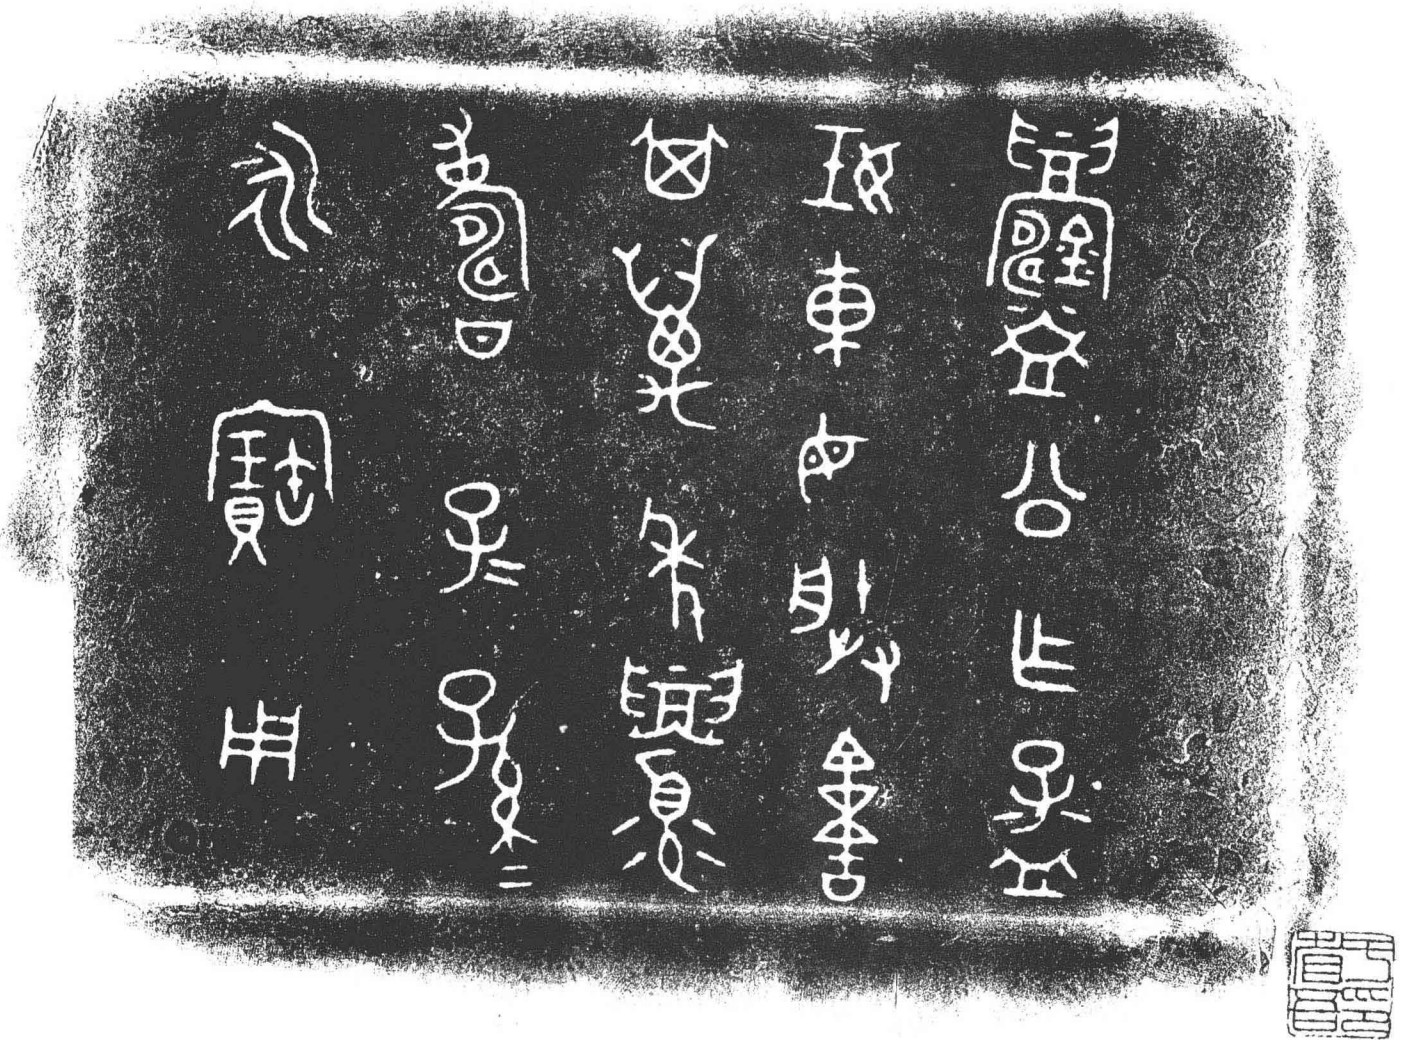 鑄公乍孟
妊車母朕簠
其萬年眉
壽子=孫=
永寶用